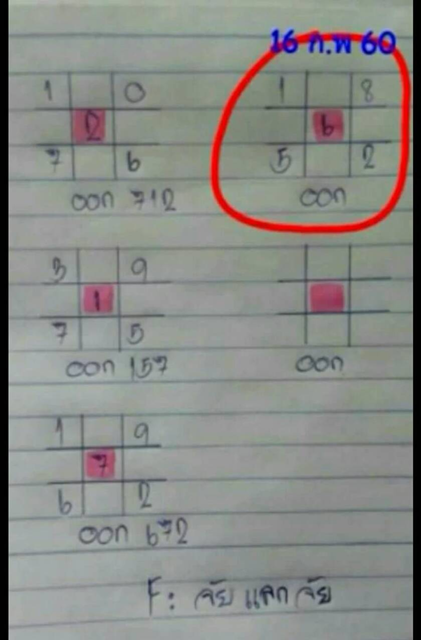 16 ก.พ 60
1 0
2
7 6
ออก 712
1 8
6
5 2
ออก
3 9
1
7 5
ออก 157
ออก
1 9
7
6 2
ออก 672
F: จัย แลก จัย